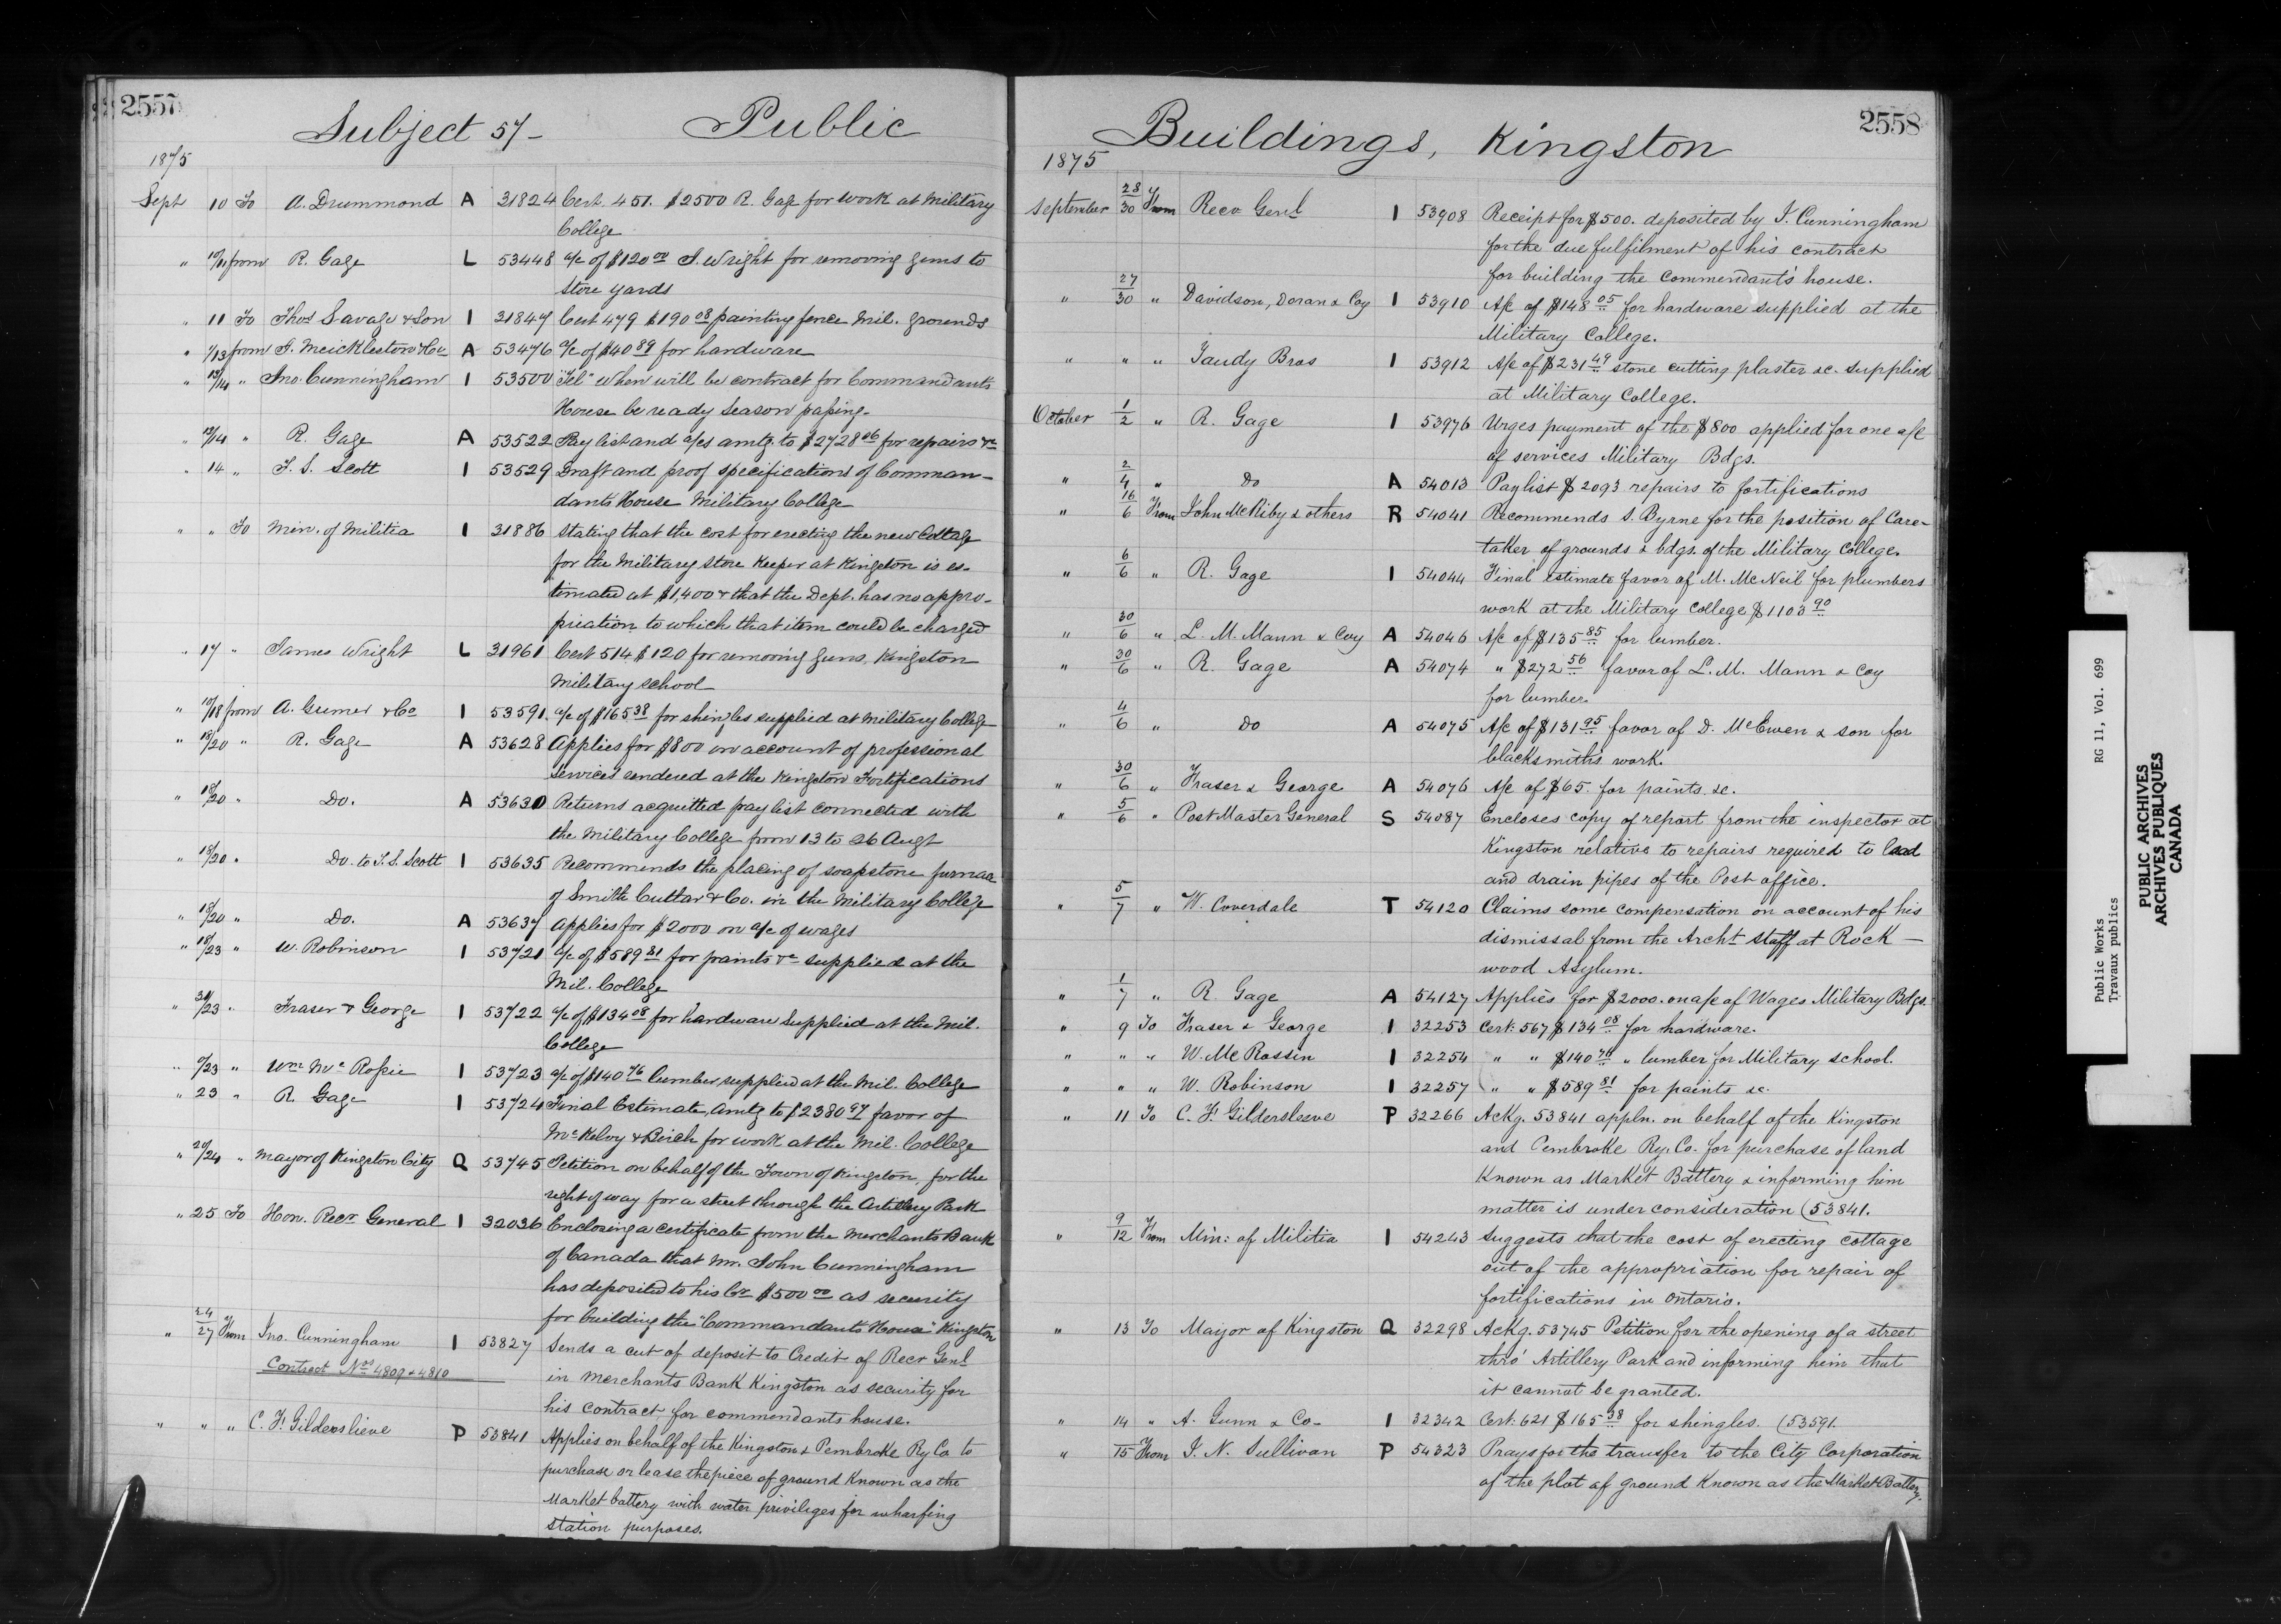 2557
Subject 57- Public
1875
Sept 10 To A. Drummond A 31824 Cert. 451. $2500 R. Gage for work at Military
College
" 10/11 from R. Gage L 53448 a/c of $120 00 J. Wright for removing guns to
store yards
" 11 To Thos Savage & Son I 31847 Cert 479 $190 08 painting fence Mil. grounds
" 1/13 from J. Meickleston & Co A 53476 a/c of $40 89 for hardware
" 13/14 " Jno. Cunningham I 53500 "Tel" When will be contract for Commandants
House be ready Season passing.
" 12/14 " R. Gage A 53522 Pay list and a/cs amtg. to $2728 06 for repairs &c
" 14 " T. S. Scott I 53529 Draft and proof specifications of Comman-
dants House Military College
" " To Min. of Militia I 31886 Stating that the cost for erecting the new Cottage
for the Military Store Keeper at Kingston is es-
timated at $1,400 & that the Dept. has no appro-
priation to which that item could be charged
" 17 " James Wright L 31961 Cert 514 $120 for removing guns, Kingston
Military school
" 10/18 from A. & Co I 53591 a/c of $165 38 for shingles supplied at Military College
" 18/20 " R. Gage A 53628 Applies for $800 on account of professional
services rendered at the Kingston Fortifications
" 18/20 " Do. A 53630 Returns acquitted pay list connected with
the Military College from 13 to 26 Augt
" 18/20 " Do. to T. S. Scott I 53635 Recommends the placing of soapstone furnace
of Smith Cuttar & Co. in the Military College
" 18/20 " Do. A 53637 Applies for $2000 on a/c of wages
" 18/23 " W. Robinson I 53721 a/c of $589 81 for paints &c supplied at the
Mil. College
" /23 " Fraser & George I 53722 a/c of $134 08 for hardware supplied at the Mil.
College
" /23 " Wm Mc Rossie I 53723 a/c of $140 76 lumber supplied at the Mil. College
" 23 " R. Gage I 53724 Final Estimate, amtg to $2380 97 favor of
McKelvy & Birch for work at the Mil. College
" 20/24 " Mayor of Kingston City Q 53745 Petition on behalf of the Town of Kingston, for the
right of way for a street through the Artillery Park
" 25 To Hon. Recr General I 32036 Enclosing a certificate from the Merchants Bank
of Canada that Mr. John Cunningham
has deposited to his Cr $500 00 as security
for building the "Commandants House" Kingston
" 24/27 From Jno. Cunningham I 53827 Sends a cert of deposit to Credit of Recr Genl
Contract Nos 4809 & 4810
in Merchants Bank Kingston as security for
his contract for commandants house.
" " " C. F. Gildersleive P 53841 Applies on behalf of the Kingston & Pembroke Ry Co to
purchase or lease the piece of ground Known as the
Market battery with water privileges for wharfing
station purposes.
2558
Buildings, Kingston
1875
September 28/30 From Recr Genl I 53908 Receipt for $500. deposited by J. Cunningham
for the due fulfilment of his contract
for building the Commendant's house.
" 27/30 " Davidson, Doran & Coy I 53910 A/c of $148 05 for hardware supplied at the
Military College.
" " " Taudy Bros I 53912 A/c of $231 49 stone cutting plaster &c. supplied
at Military College.
October 1/2 " R. Gage I 53976 Urges payment of the $800 applied for one a/c
of services Military Bdgs.
" 2/4 " Do A 54013 Paylist $2093 repairs to fortifications
" 16/6 From John McNiby & others R 54041 Recommends S. Byrne for the position of Care-
taker of grounds & bdgs. of the Military College.
" 6/6 " R. Gage I 54044 Final estimate favor of M. McNeil for plumbers
work at the Military College $1103 90
" 30/6 " L. M. Mann & Coy A 54046 A/c of $135 85 for lumber.
" 30/6 " R. Gage A 54074 " $272 56 favor of L. M. Mann & Coy
for lumber.
" 4/6 " Do A 54075 A/c of $131 95 favor of D. McEwen & son for
blacksmiths work.
" 30/6 " Fraser & George A 54076 A/c of $65. for paints &c.
" 5/6 " Post Master General S 54087 Encloses copy of report from the inspector at
Kingston relative to repairs required to lead
and drain pipes of the Post office.
" 5/7 " W. Coverdale T 54120 Claims some compensation on account of his
dismissal from the Archt staff at Rock-
wood Asylum.
" 1/7 " R. Gage A 54127 Applies for $2000. on a/c of Wages Military Bdgs.
" 9 To Fraser & George I 32253 Cert: 567 $134 08 for hardware.
" " " W. McRassin I 32254 " " $140 76 " lumber for Military school.
" " " W. Robinson I 32257 " " $589 81 for paints &c.
" 11 To C. F. Gildersleeve P 32266 Ackg. 53841 appln. on behalf of the Kingston
and Pembroke Ry. Co. for purchase of land
Known as Market Battery & informing him
matter is under consideration (53841.
" 9/12 From Min: of Militia I 54243 Suggests that the cost of erecting cottage
out of the appropriation for repair of
fortifications in Ontario.
" 13 To Maijor of Kingston Q 32298 Ackg. 53745 Petition for the opening of a street
thro' Artillery Park and informing him that
it cannot be granted.
" 14 " A. Gunn & Co- I 32342 Cert: 621 $165 38 for shingles. (53591.
" 15 From J. N. Sullivan P 54323 Prays for the transfer to the City Corporation
of the plot of ground Known as the Market Battery.
Public Works RG 11, Vol. 699
Travaux publics
PUBLIC ARCHIVES
ARCHIVES PUBLIQUES
CANADA